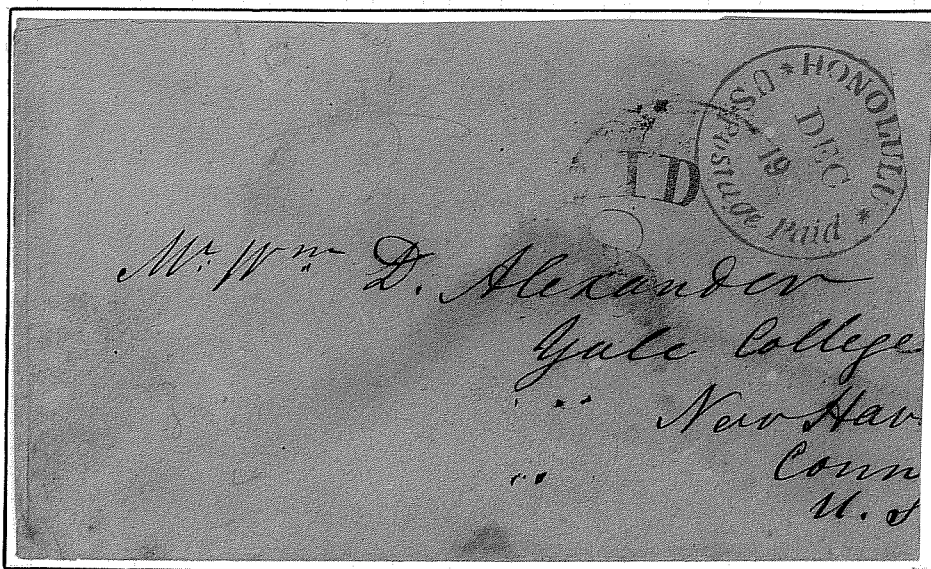 HONOLULU * U.S. Postage Paid *
DEC
19
Mr. Wm D. Alexander
Yale College
New Hav
Conn
U. S